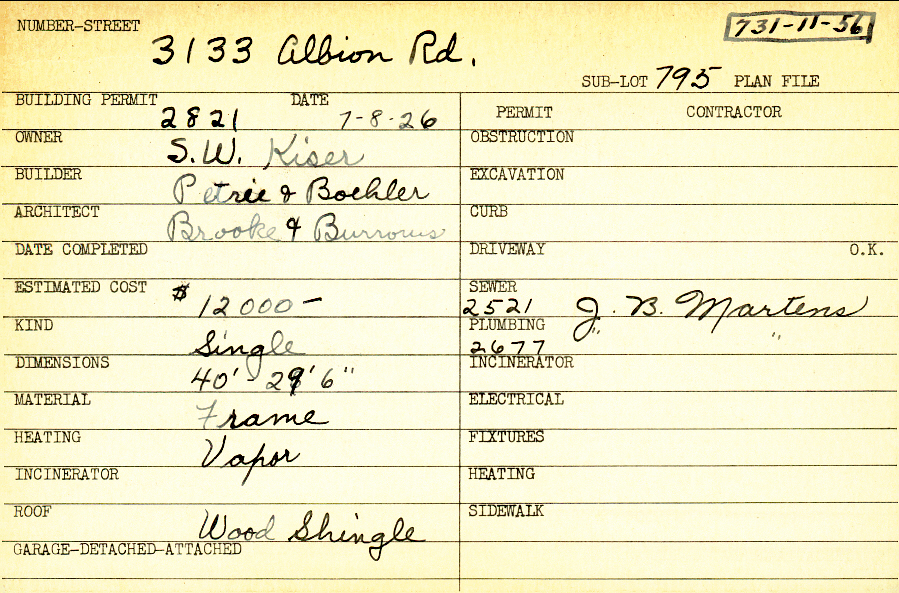 NUMBER-STREET
3133 Albion Rd.
731-11-56
SUB-LOT 795 PLAN FILE
BUILDING PERMIT 2821 DATE 7-8-26
OWNER S.W. Kiser
BUILDER Petrie & Boehler
ARCHITECT Brooke & Burrows
DATE COMPLETED
ESTIMATED COST $12000-
KIND Single
DIMENSIONS 40'- 29'6"
MATERIAL Frame
HEATING Vapor
INCINERATOR
ROOF Wood Shingle
GARAGE-DETACHED-ATTACHED
PERMIT CONTRACTOR
OBSTRUCTION
EXCAVATION
CURB
DRIVEWAY O.K.
SEWER
2521 J. B. Martens
PLUMBING " "
2677
INCINERATOR
ELECTRICAL
FIXTURES
HEATING
SIDEWALK